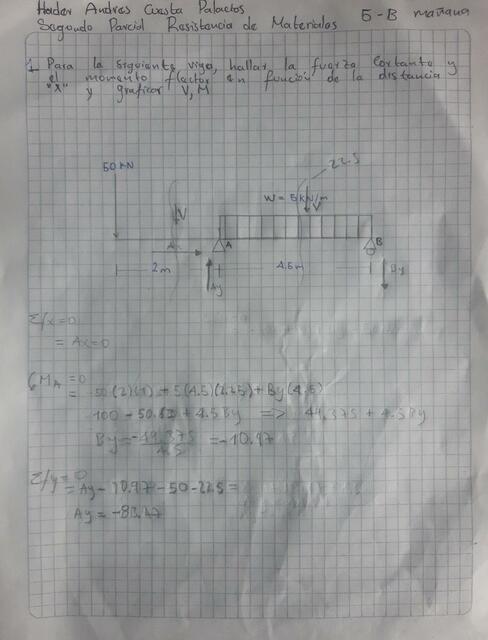 Haider Andres Cuesta Palacios
5-B mañana
Segundo Parcial Resistencia de Materiales
1 Para la siguiente viga, hallar la fuerza Cortante y
el momento flector en función de la distancia
"X" y graficar V, M
50 KN
22.5
V
W = 5 KN/m
A
B
2m
4.5m
Ay
By
Σfx=0
= Ax=0
MA =0
= 50(2)(1) + 5(4.5)(2.25) + By(4.5)
100 - 50.62 + 4.5By => 49.375 + 4.5By
By = -49.375/4.5 = -10.97
Σfy=0
= Ay - 10.97 - 50 - 22.5 =
Ay = -83.47